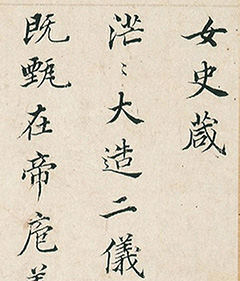 女史葴
茫〻大造二儀
既甄在帝庖